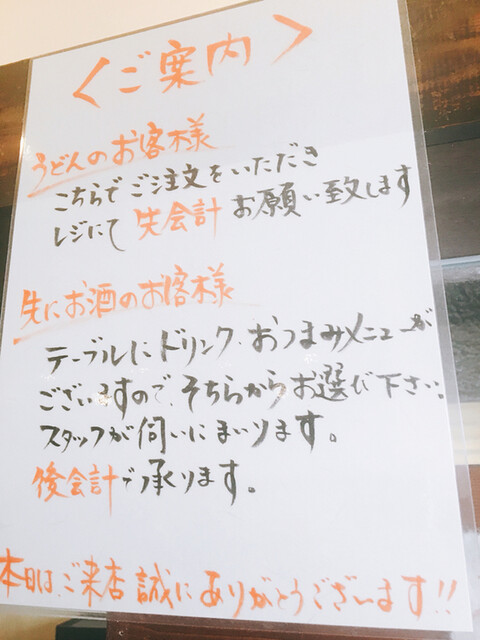 〈ご案内〉
うどんのお客様
こちらでご注文をいただき
レジにて先会計お願い致します
先にお酒のお客様
テーブルにドリンク、おつまみメニューが
ございますので、そちらからお選び下さい。
スタッフが伺いにまいります。
後会計で承ります。
本日は、ご来店誠にありがとうございます!!